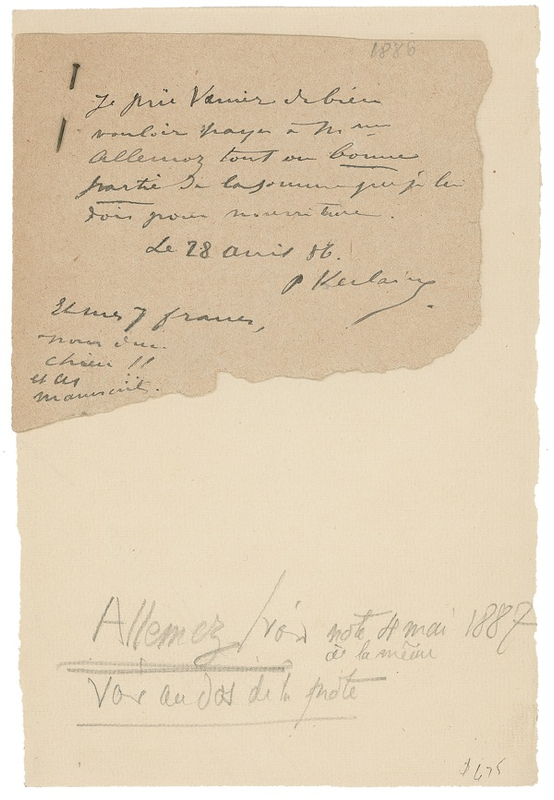 1886
Je prie Vanier de bien
vouloir payer à Mme
Allemoz tout ou bonne
partie de la somme que je lui
dois pour nourriture.
Le 28 avril 86.
P Verlaine
Et mes 7 francs,
pour du
chien !!
et des
manuscrits.
Allemez / voir note 4 mai 1887
de la même
Voir au dos de la note